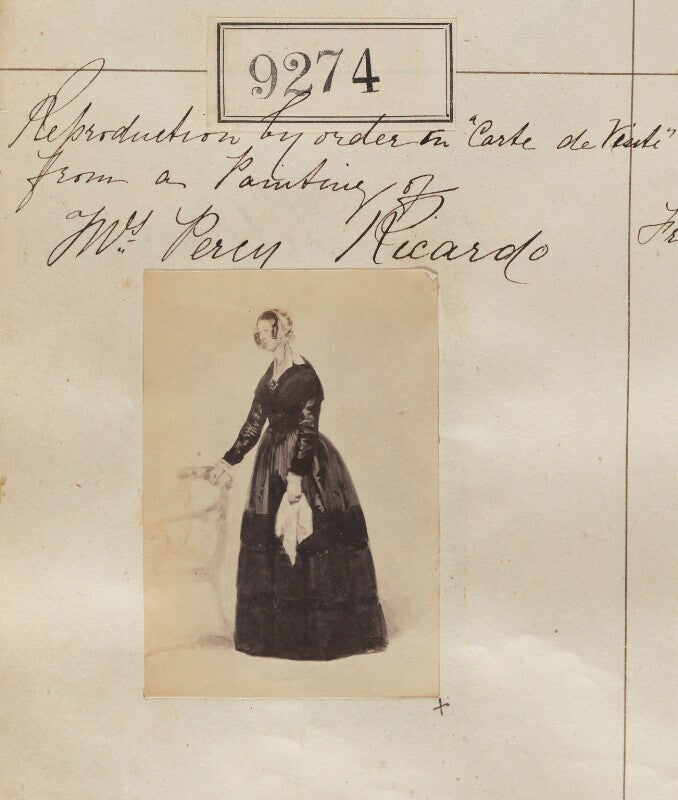 9274
Reproduction by order on "Carte de Visite"
from a Painting of
Mrs. Percy Ricardo
Fr
x